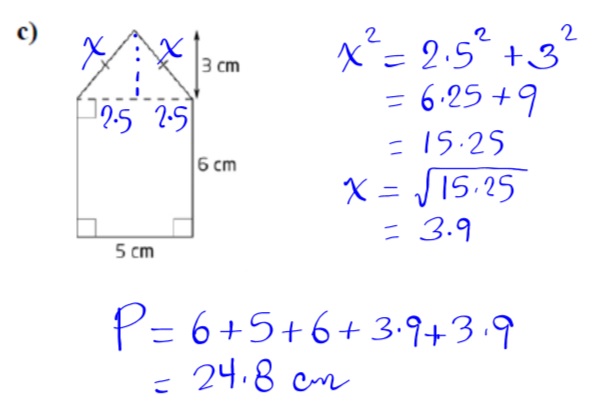 c)
x x
3 cm
2.5 2.5
6 cm
5 cm
x² = 2.5² + 3²
= 6.25 + 9
= 15.25
x = √15.25
= 3.9
P = 6 + 5 + 6 + 3.9 + 3.9
= 24.8 cm